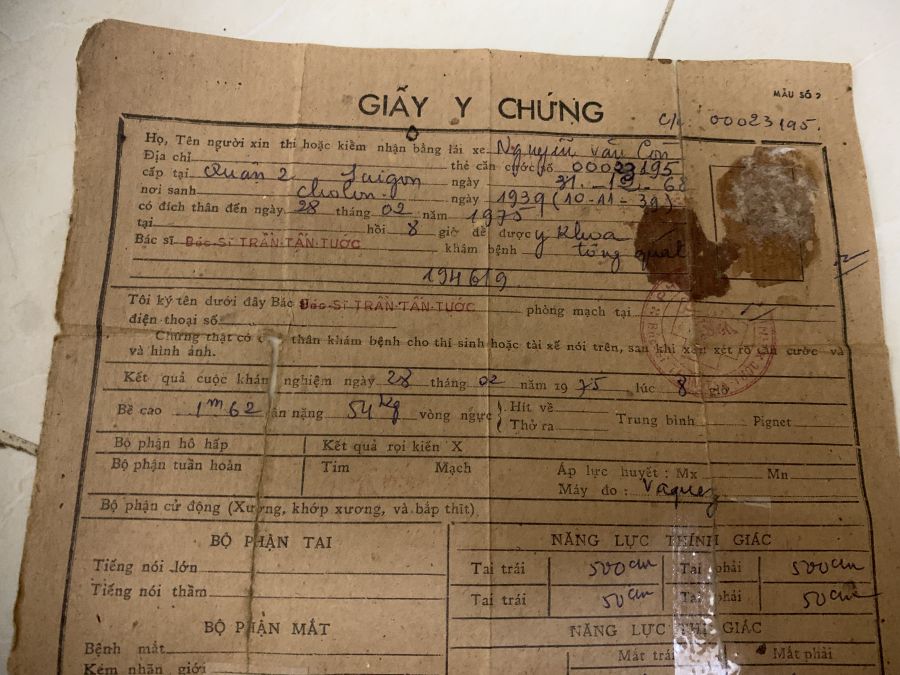 MẪU SỐ 2
GIẤY Y CHỨNG
c/c: 00023195.
Họ, Tên người xin thi hoặc kiểm nhận bằng lái xe Nguyễn Văn Còn
Địa chỉ thẻ căn cước số 00023195
cấp tại Quận 2 Saigon ngày 31-12-68
nơi sanh Cholon ngày 1939 (10-11-39)
có đích thân đến ngày 28 tháng 02 năm 1975
tại hồi 8 giờ để được y khoa
Bác sĩ Bác-Sĩ TRẦN-TẤN-TƯỚC khám bệnh tổng quát
194619
Tôi ký tên dưới đây Bác Bác-Sĩ TRẦN-TẤN-TƯỚC phòng mạch tại
điện thoại số
Chứng thật có thân khám bệnh cho thí sinh hoặc tài xế nói trên, sau khi xem xét rõ căn cước và
và hình ảnh.
Kết quả cuộc khám nghiệm ngày 28 tháng 02 năm 1975 lúc 8 giờ
Bề cao 1m62 cân nặng 54kg vòng ngực Hít về Trung bình Pignet
Thở ra
Bộ phận hô hấp Kết quả rọi kiến X
Bộ phận tuần hoàn Tim Mạch Áp lực huyết : Mx Mn
Máy đo : Vaquez
Bộ phận cử động (Xương, khớp xương, và bắp thịt)
BỘ PHẬN TAI NĂNG LỰC THÍNH GIÁC
Tiếng nói lớn Tai trái 500cm Tai phải 500cm
Tiếng nói thầm Tai trái 50cm Tai phải 50cm
BỘ PHẬN MẮT NĂNG LỰC THỊ GIÁC
Bệnh mắt Mắt trái Mắt phải
Kém nhãn giới